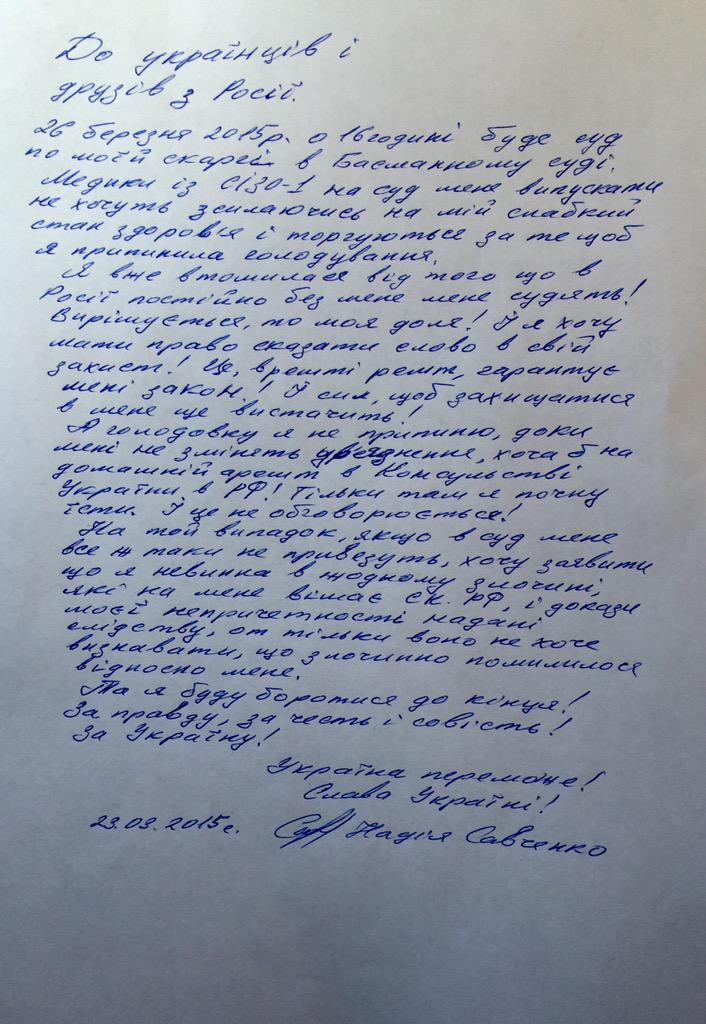 До українців і
друзів з Росії.
26 березня 2015р. о 16годині буде суд
по моїй скаргі в Басманному суді.
Медики із СІЗО-1 на суд мене випускати
не хочуть зсилаючись на мій слабкий
стан здоров'я і торгуються за те щоб
я припинила голодування.
Я вже втомилася від того що в
Росії постійно без мене мене судять!
Вирішується, то моя доля! І я хочу
мати право сказати слово в свій
захист! Це, врешті решт, гарантує
мені закон! І сил, щоб захищатися
в мене ще вистачить!
А голодовку я не припиню, доки
мені не змінять хоча б на
домашній арешт в Консульстві
України в РФ! Тільки там я почну
їсти. І це не обговорюється!
На той випадок, якщо в суд мене
все ж таки не приведуть, хочу заявити
що я невинна в жодному злочині,
які на мене вішає ск. РФ, і докази
моєї непричетності надані
слідству, от тільки воно не хоче
визнавати, що злочинно помилилося
відносно мене.
Та я буду боротися до кінця!
За правду, за честь і совість!
За Україну!
Україна переможе!
Слава Україні!
23.03.2015г. Надія Савченко